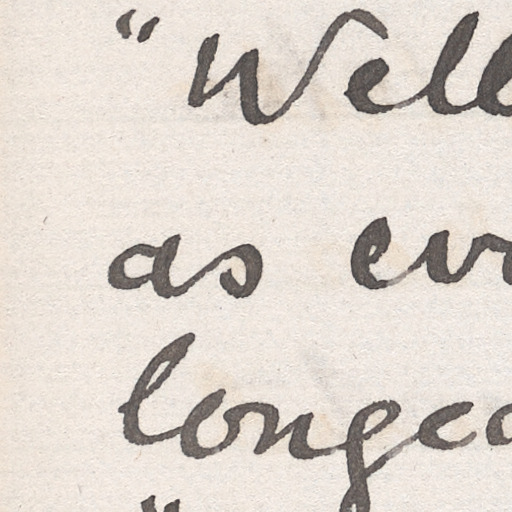 "Well
as ev
longe
"